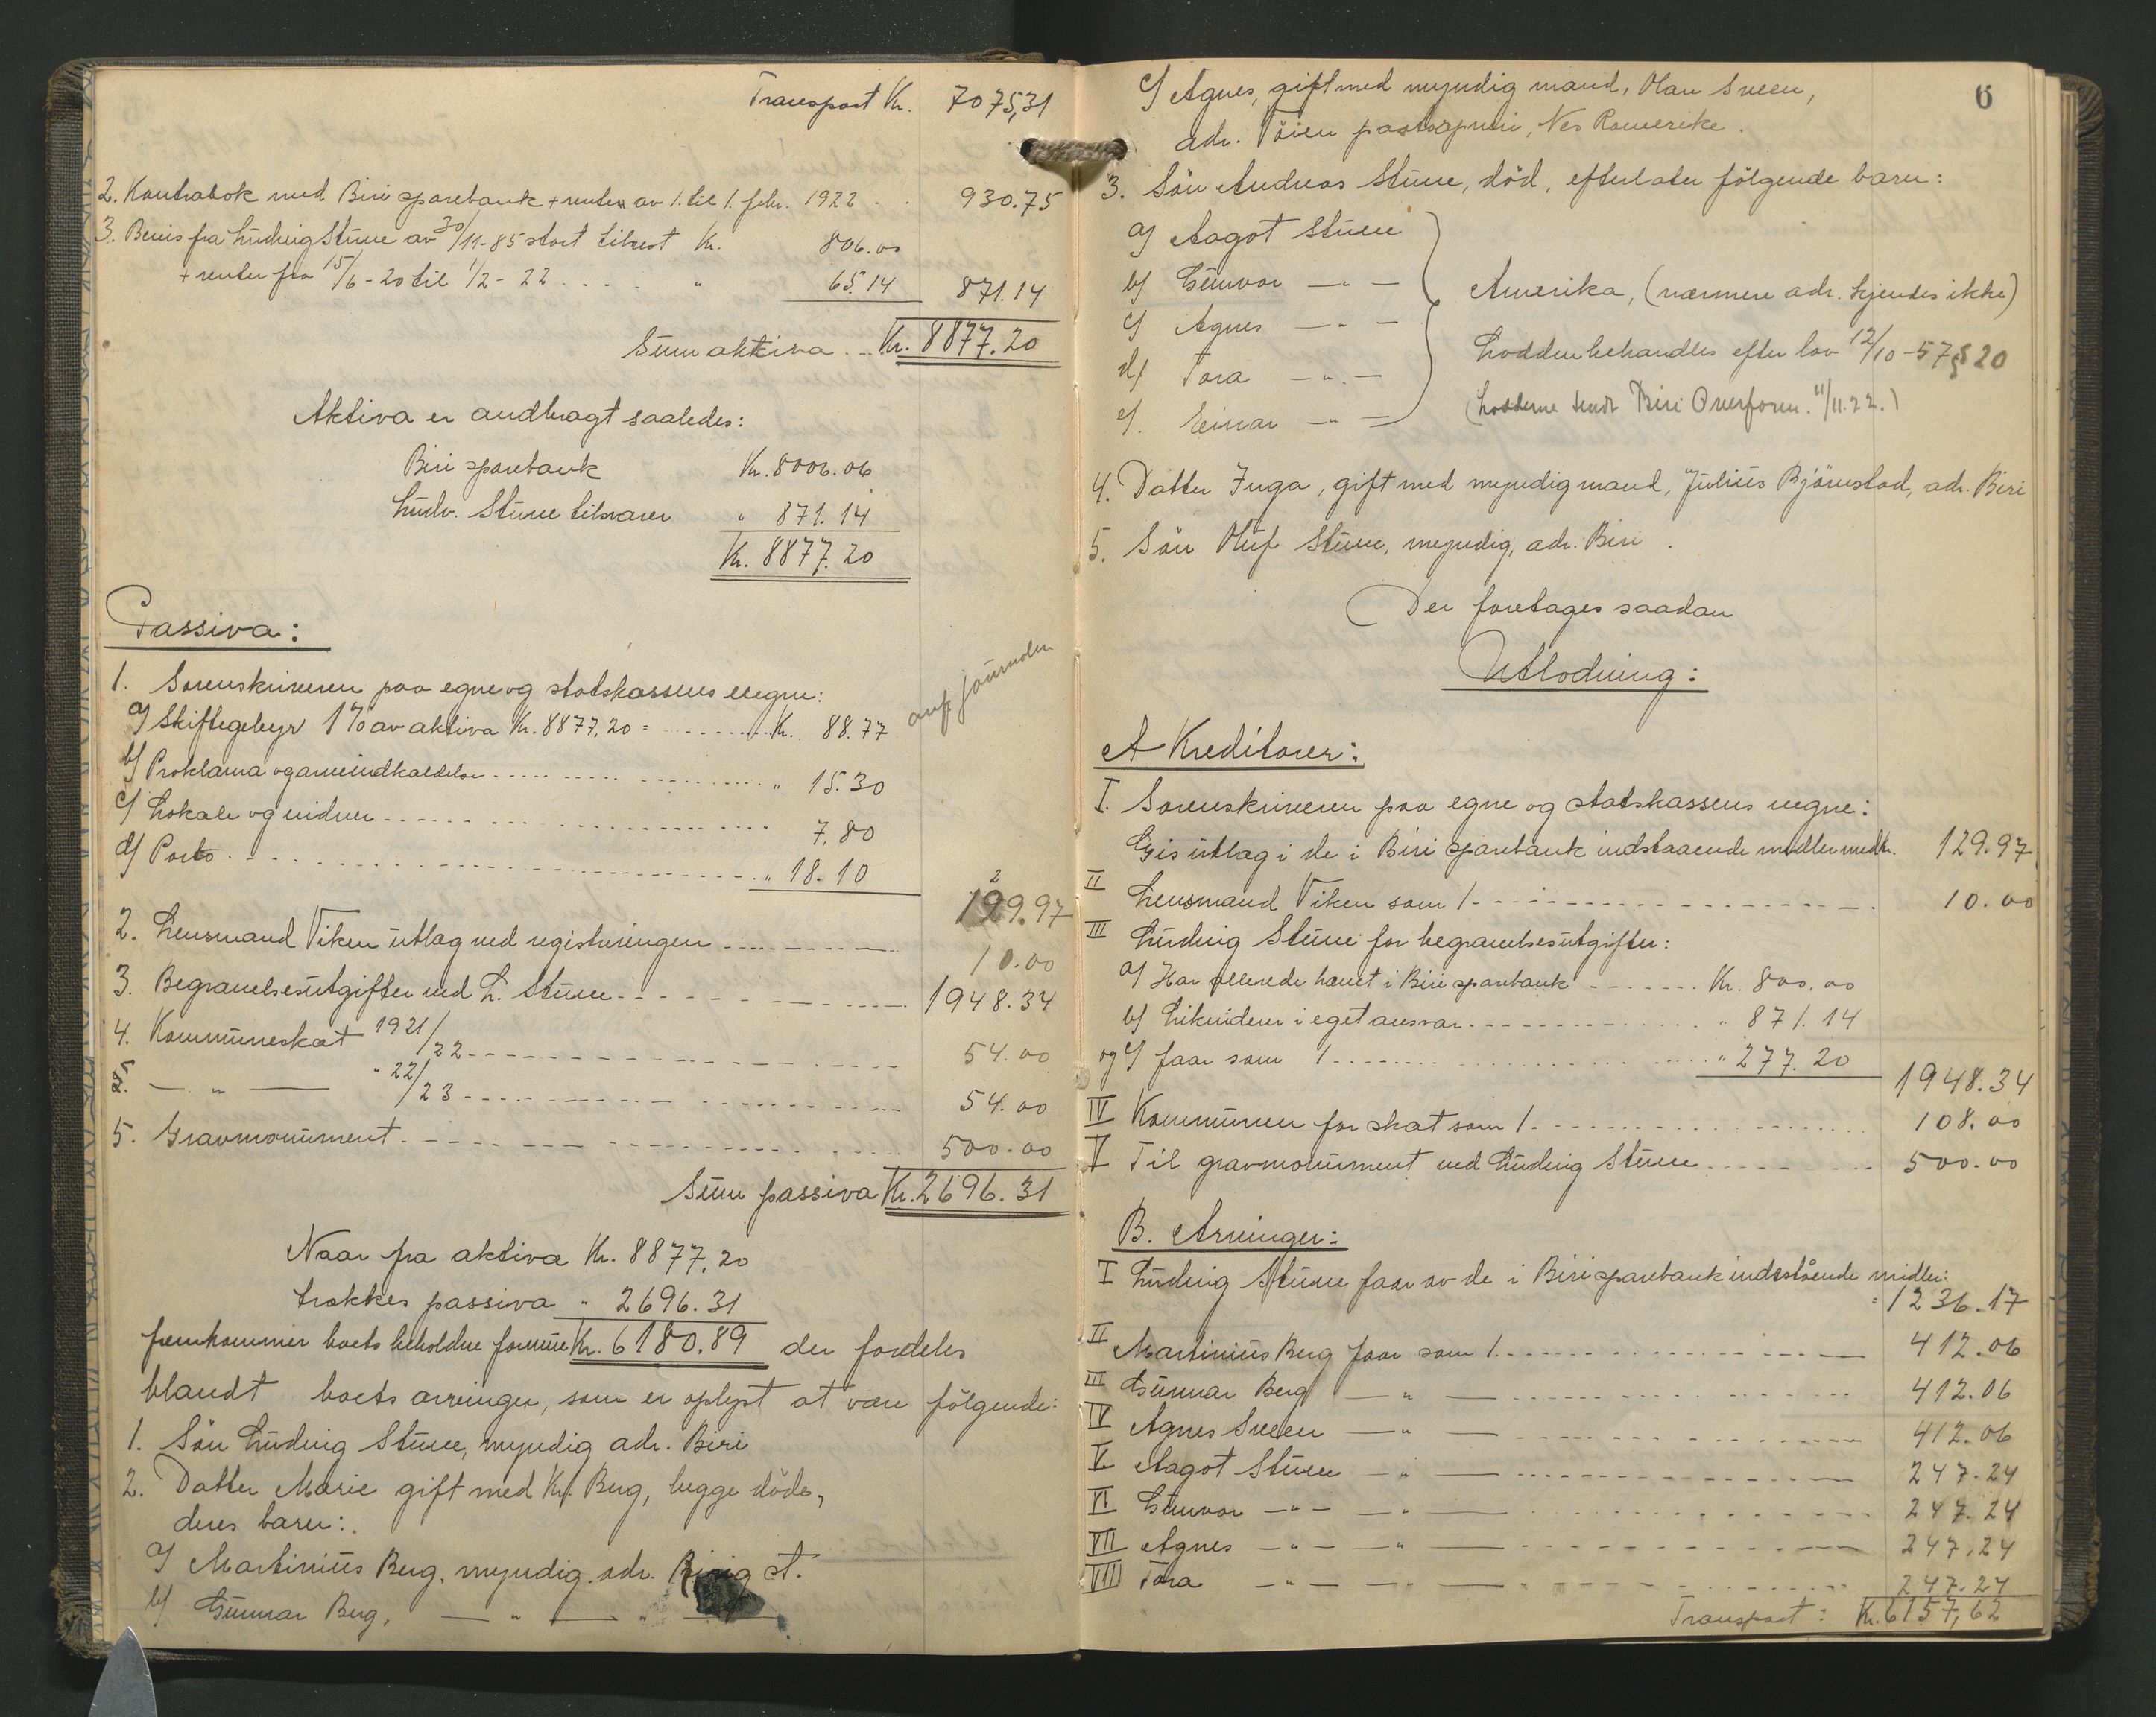 Transport Kr. 7075,31
2. Kontrabok med Biri sparebank + renter av 1. til 1. febr. 1922 . . 930.75
3. Bevis fra Ludvig Stüve av 30/11-85 stort tilrest Kr. 806.00
+ renter fra 15/6-20 til 1/2-22 . . . . " 65.14 871.14
Sum aktiva . . Kr. 8877.20
Aktiva er andbragt saaledes:
Biri sparebank Kr. 8006.06
Ludv. Stüve tilsvarer " 871.14
Kr. 8877.20
Passiva:
1. Sorenskriveren paa egne og statskassens vegne:
a) Skiftegebyr 1% av aktiva Kr. 8877,20 = . . . . Kr. 88.77
anf. journalen
b) Proklama og arveindkaldelse . . . . " 15.30
c) Lokale og vidner . . . . 7.80
d) Porto . . . . " 18.10
129.97
2. Lensmand Viken utlæg ved registreringen . . . . 10.00
3. Begravelsesutgifter ved L. Stüve . . . . 1948.34
4. Kommuneskat 1921/22 . . . . 54.00
5. — " — " 22/23 . . . . 54.00
5. Gravmonument . . . . 500.00
Sum passiva Kr. 2696.31
Naar fra aktiva Kr. 8877,20
trækkes passiva " 2696.31
fremkommer boets beholdne formue Kr. 6180.89 der fordeles
blandt boets arvinger, som er oplyst at være følgende:
1. Sön Ludvig Stüve, myndig adr. Biri
2. Datter Marie gift med Kr. Berg, begge döde,
deres barn:
a) Martinius Berg, myndig, adr. Biri st.
b) Gunnar Berg, — " — " —
6
c) Agnes, gift med myndig mand, Olav Sveen,
adr. Töien postaapneri, Nes Romerike.
3. Sön Andreas Stüve, död, efterlater følgende barn:
a) Aagot Stüve
b) Gunvor — " —
c) Agnes — " —
d) Tora — " —
e) Einar — " —
Amerika, (nærmere adr. kjendes ikke)
Lodden behandles efter lov 12/10-57 § 20
(Lodderne sendt Biri Overform. 11/11.22.)
4. Datter Inga, gift med myndig mand, Julius Bjørnstad, adr. Biri
5. Sön Oluf Stüve, myndig, adr. Biri.
Der foretages saadan
Utlodning:
A Kreditorer:
I. Sorenskriveren paa egne og statskassens vegne:
Gis utlæg i de i Biri sparebank indstaaende midler med kr. 129.97
II Lensmand Viken som 1 . . . . 10.00
III Ludvig Stüve for begravelsesutgifter:
a) Har allerede hævet i Biri sparebank . . . . Kr. 800.00
b) Likviderer i eget ansvar . . . . " 871.14
og c) faar som 1 . . . . " 277.20
1948.34
IV Kommunen for skat som 1 . . . . 108.00
V Til gravmonument ved Ludvig Stüve . . . . 500.00
B. Arvinger:
I Ludvig Stüve faar av de i Biri sparebank indestående midler:
" 1236.17
II Martinius Berg faar som 1 . . . . 412.06
III Gunnar Berg — " — . . . . 412.06
IV Agnes Sveen — " — . . . . 412.06
V Aagot Stüve — " — . . . . 247.24
VI Gunvor — " — — " — . . . . 247.24
VII Agnes — " — — " — . . . . 247.24
VIII Tora — " — — " — . . . . 247.24
Transport: Kr. 6157,62